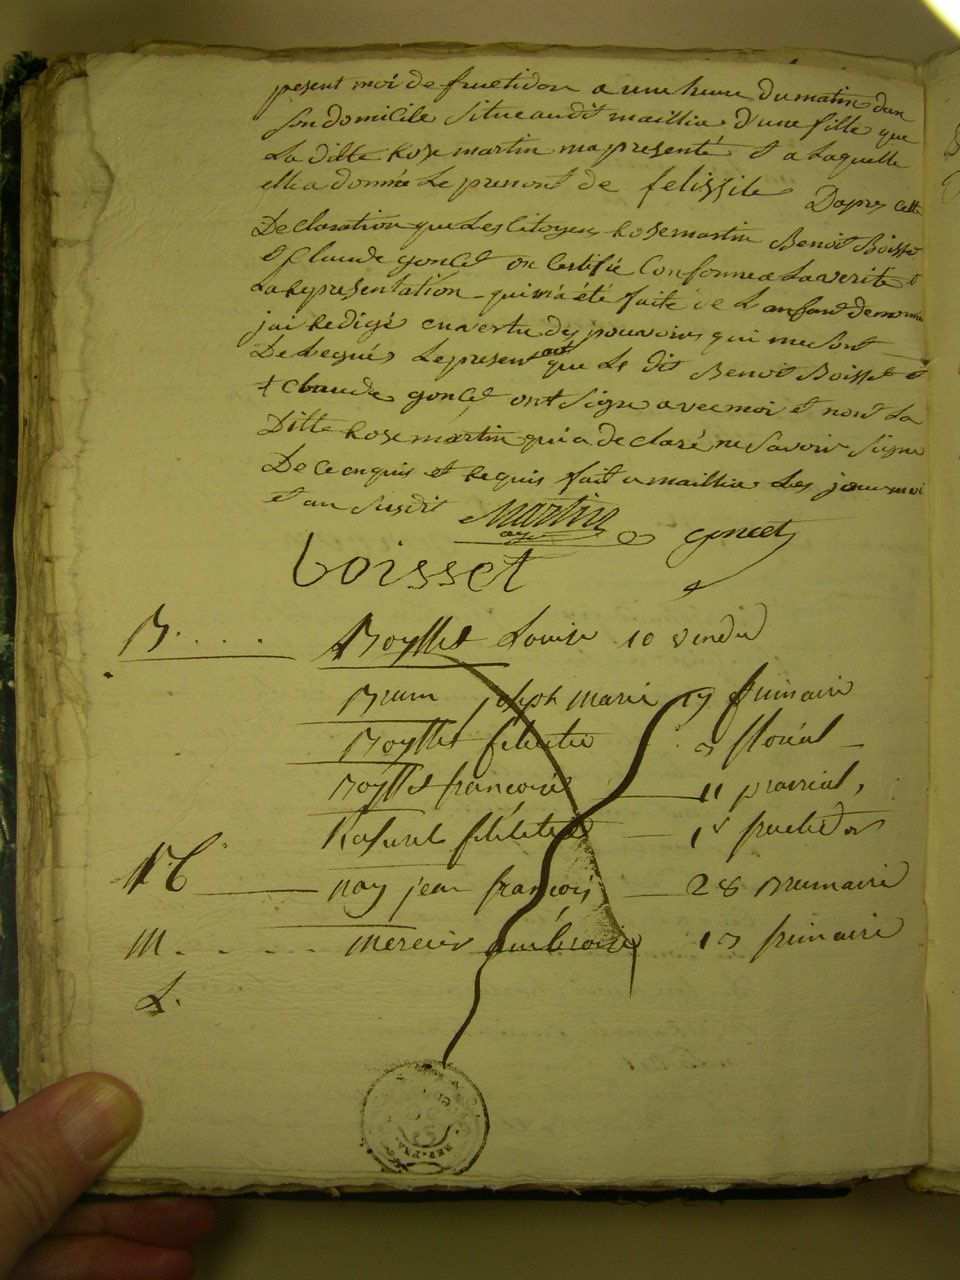 present moi de fructidor a une heure du matin dan
son domicile situe audit maillia d'une fille que
La ditte Rose martin ma presenté et a Laquelle
elle a donnée Le prenom de felissite D'apres cette
Declaration que Les Citoyens Rose martin Benoit Boisset
et Claude goncet on Certifié Conforme a La verité et
La Representation qui m'a été faite de L'anfant denomme
jai Redigé en vertu des pouvoirs qui me sont
Delegués Le present act que Le dit Benoit Boisset et
Claude goncet ont Signe avec moi et nont La
Ditte Rose martin qui a declaré ne Savoir Signe
De ce enquis et Requis fait a maillia Les jour moi
et an susdit Martin goncet
boisset
B.... Boysset Louise 10 vendé
Brun joseph marie 19 frimaire
Boysset felicitée 3 floréal
Boysset françoise 11 prairial,
felicitée fructidor
nay jean françois 28 Brumaire
M.... mercier 13 frimaire
L.